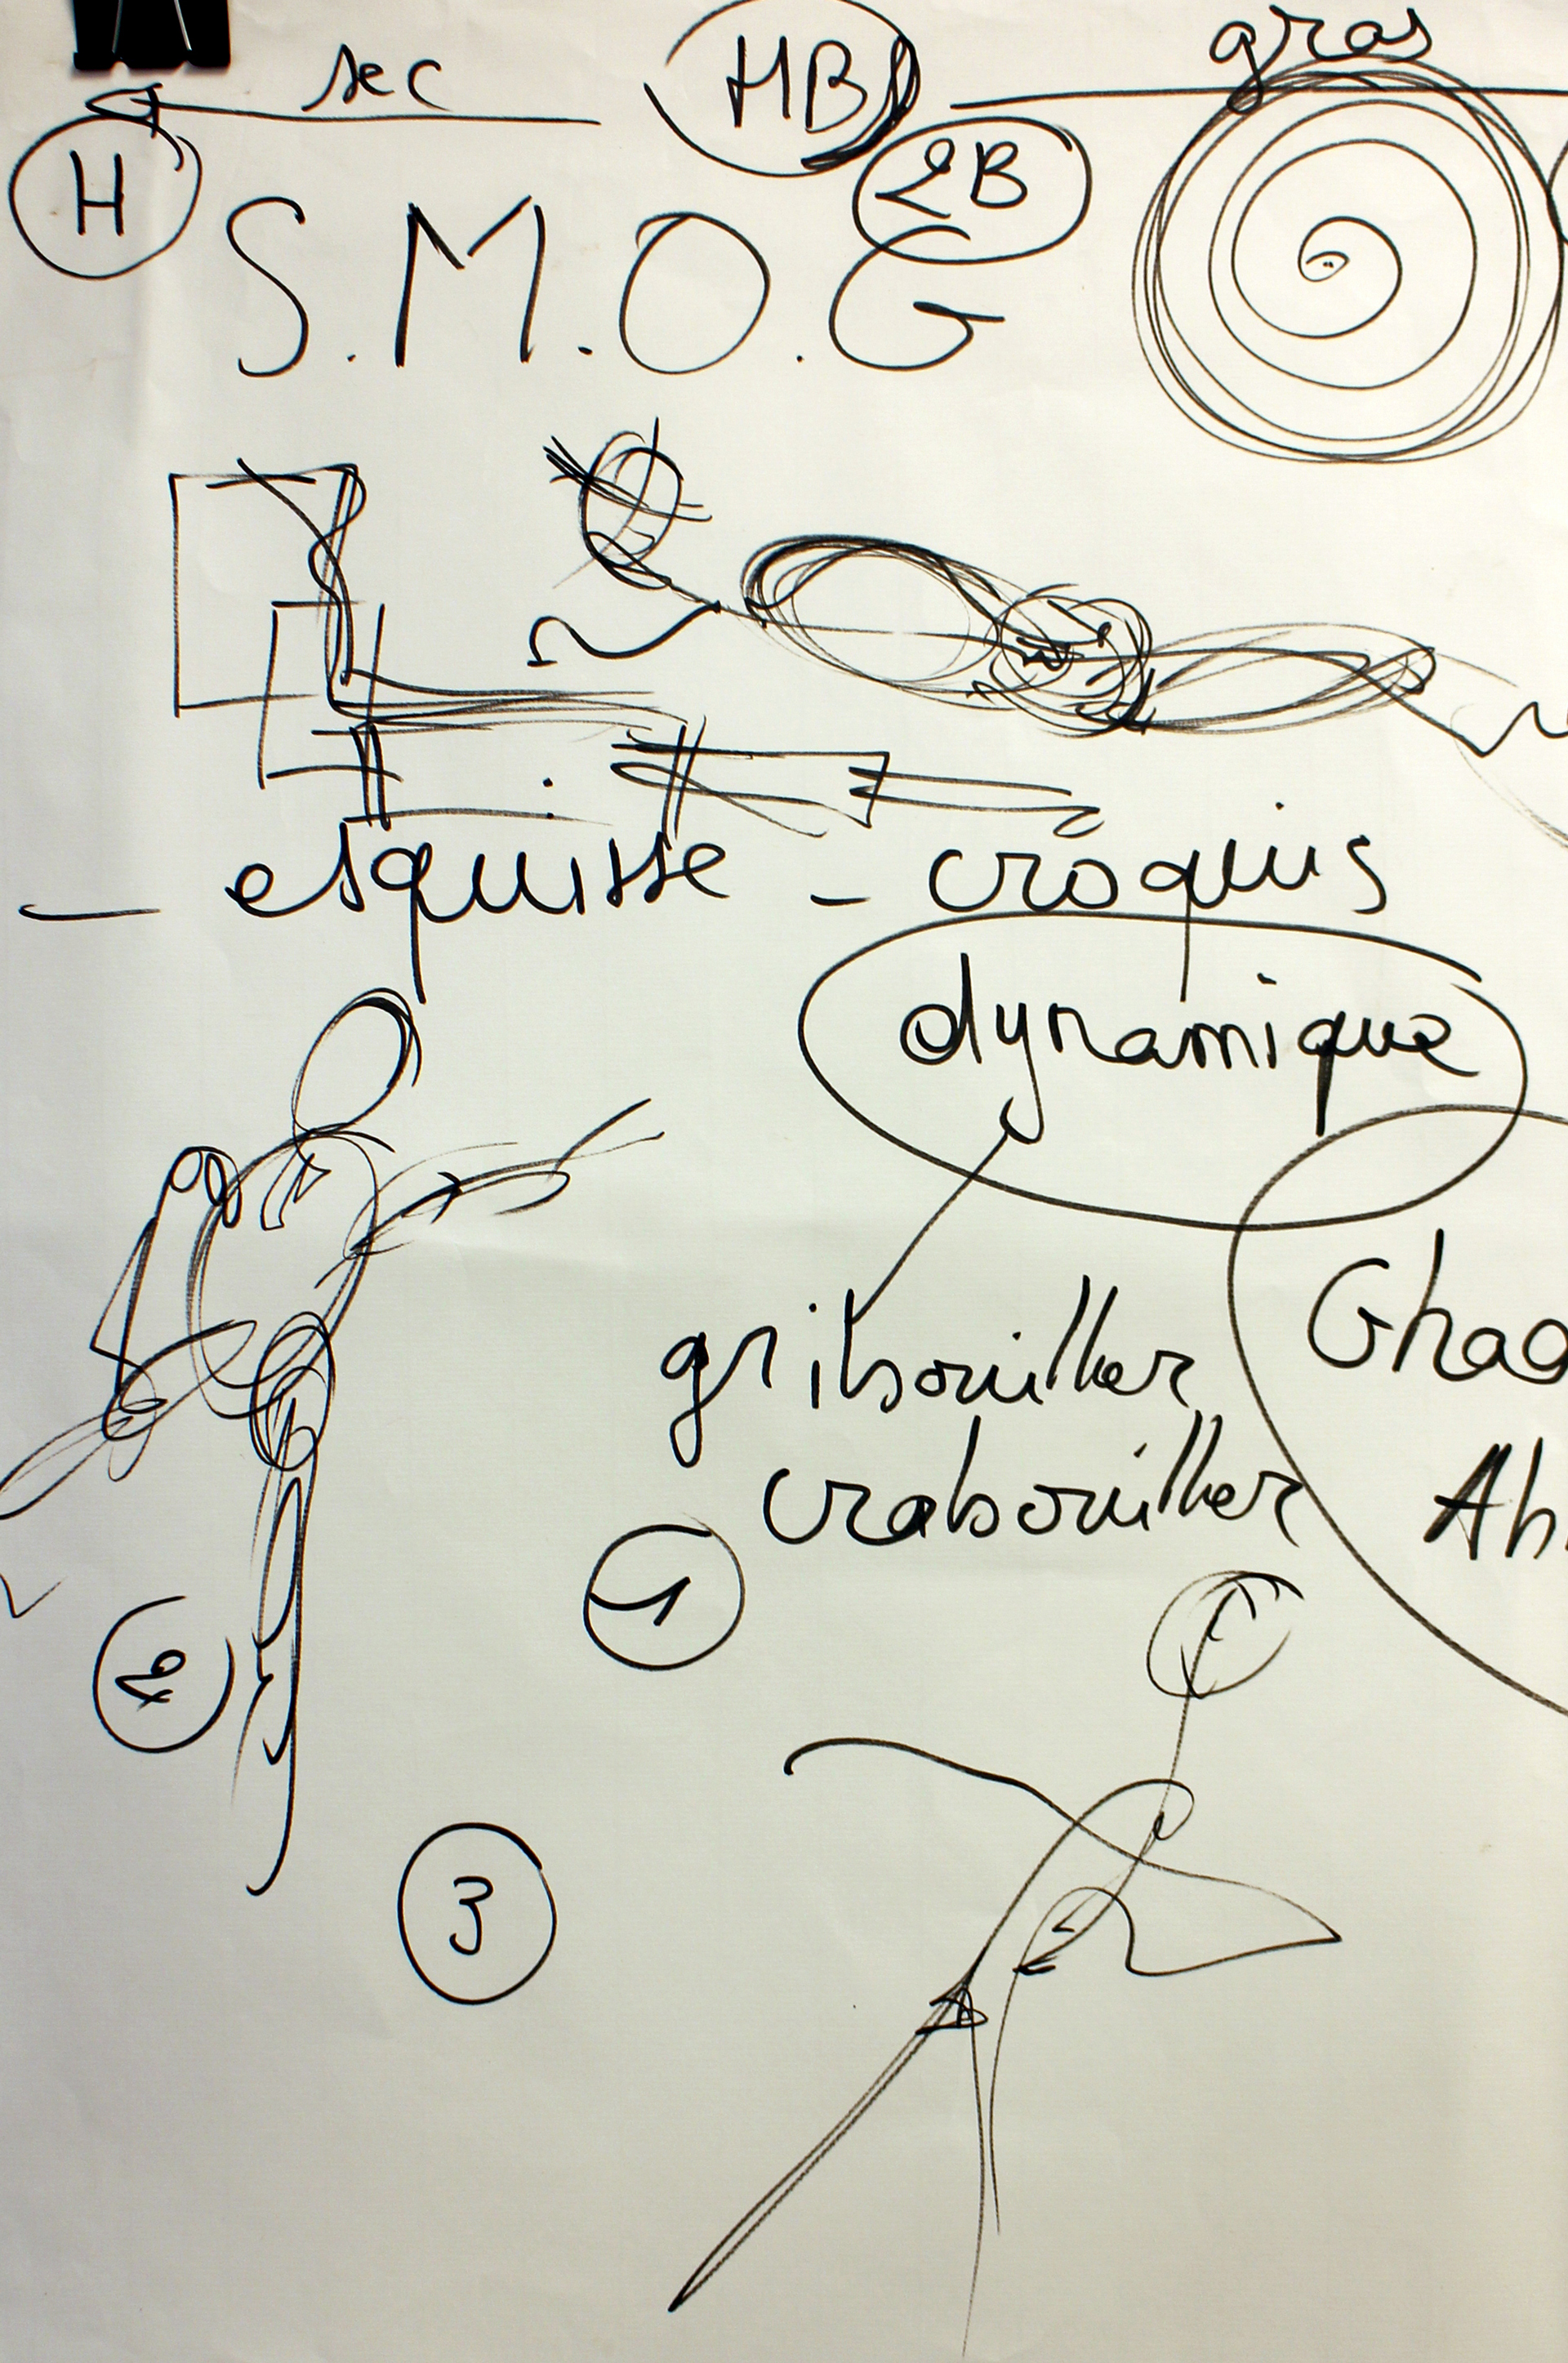 sec HB gras
H 2B
S.M.O.G
- esquisse - croquis
dynamique
gribouiller
crabouiller
Ghaa
Ah
1
3